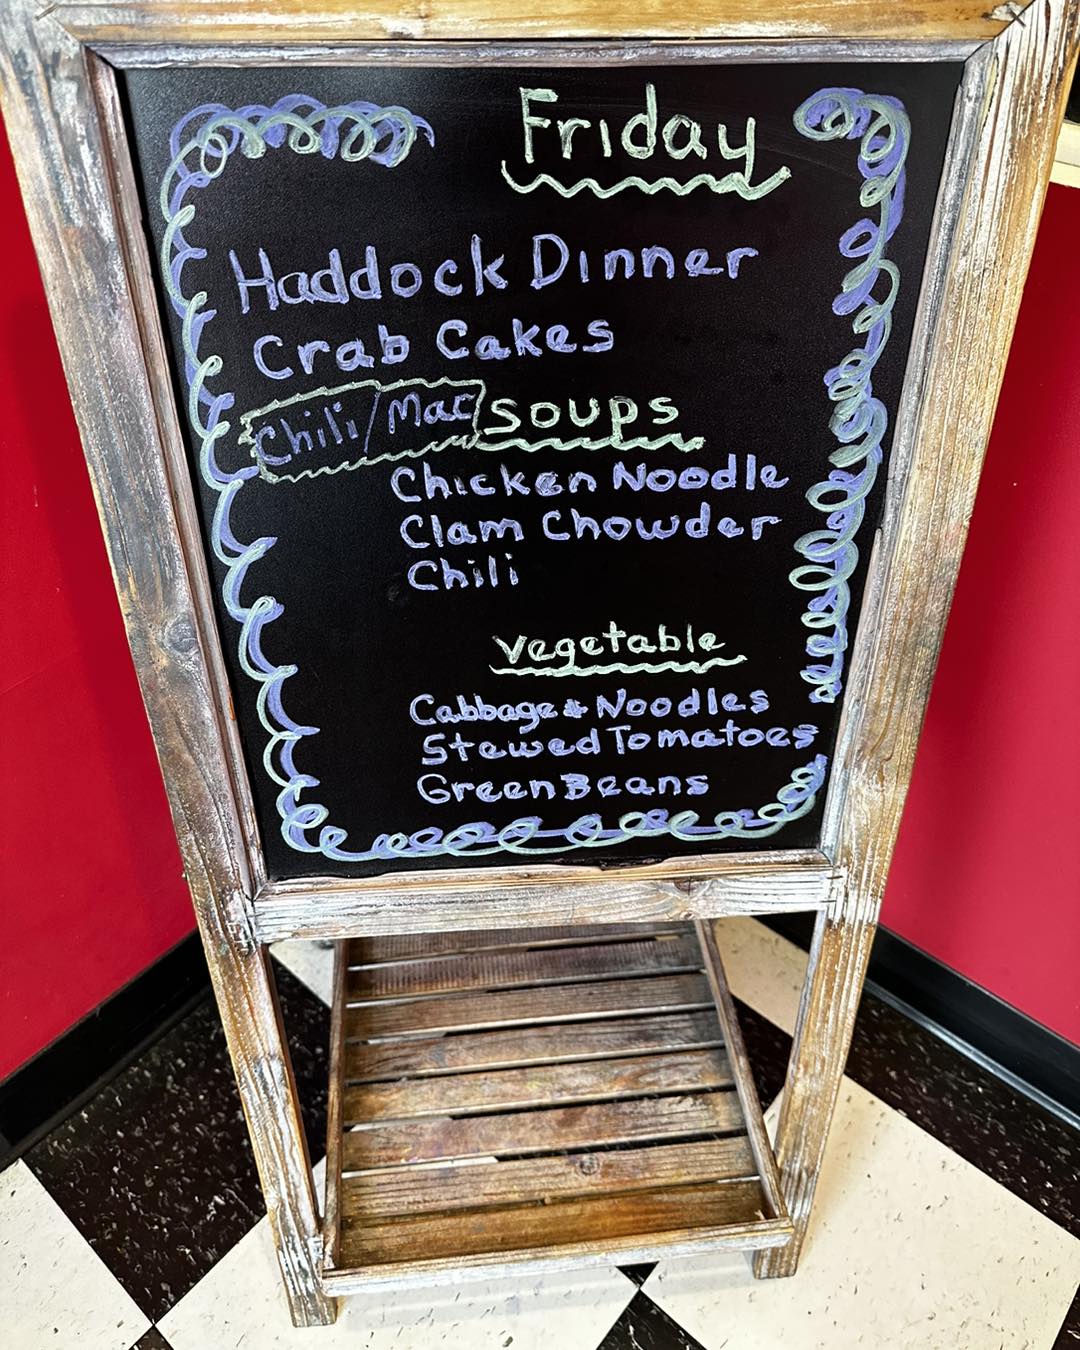 Friday
Haddock Dinner
Crab Cakes
Chili/Mac
SOUPS
Chicken Noodle
Clam Chowder
Chili
Vegetable
Cabbage & Noodles
Stewed Tomatoes
Green Beans